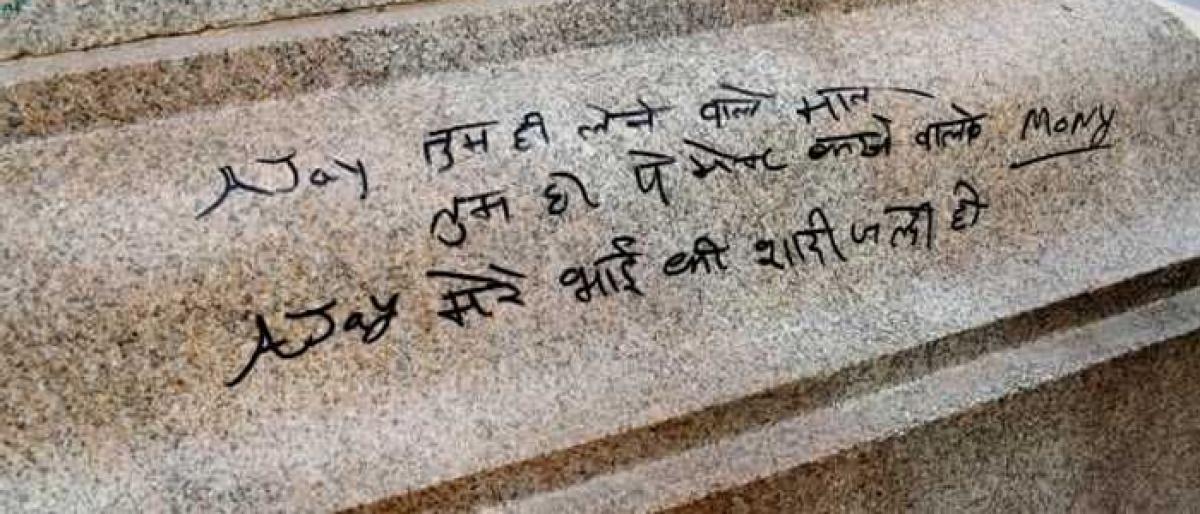 AJay तुम ही लेने वाले माल
तुम ही पेमेन्ट करने वाले MONY
AJay मेरे भाई की शादी जल्दी हो